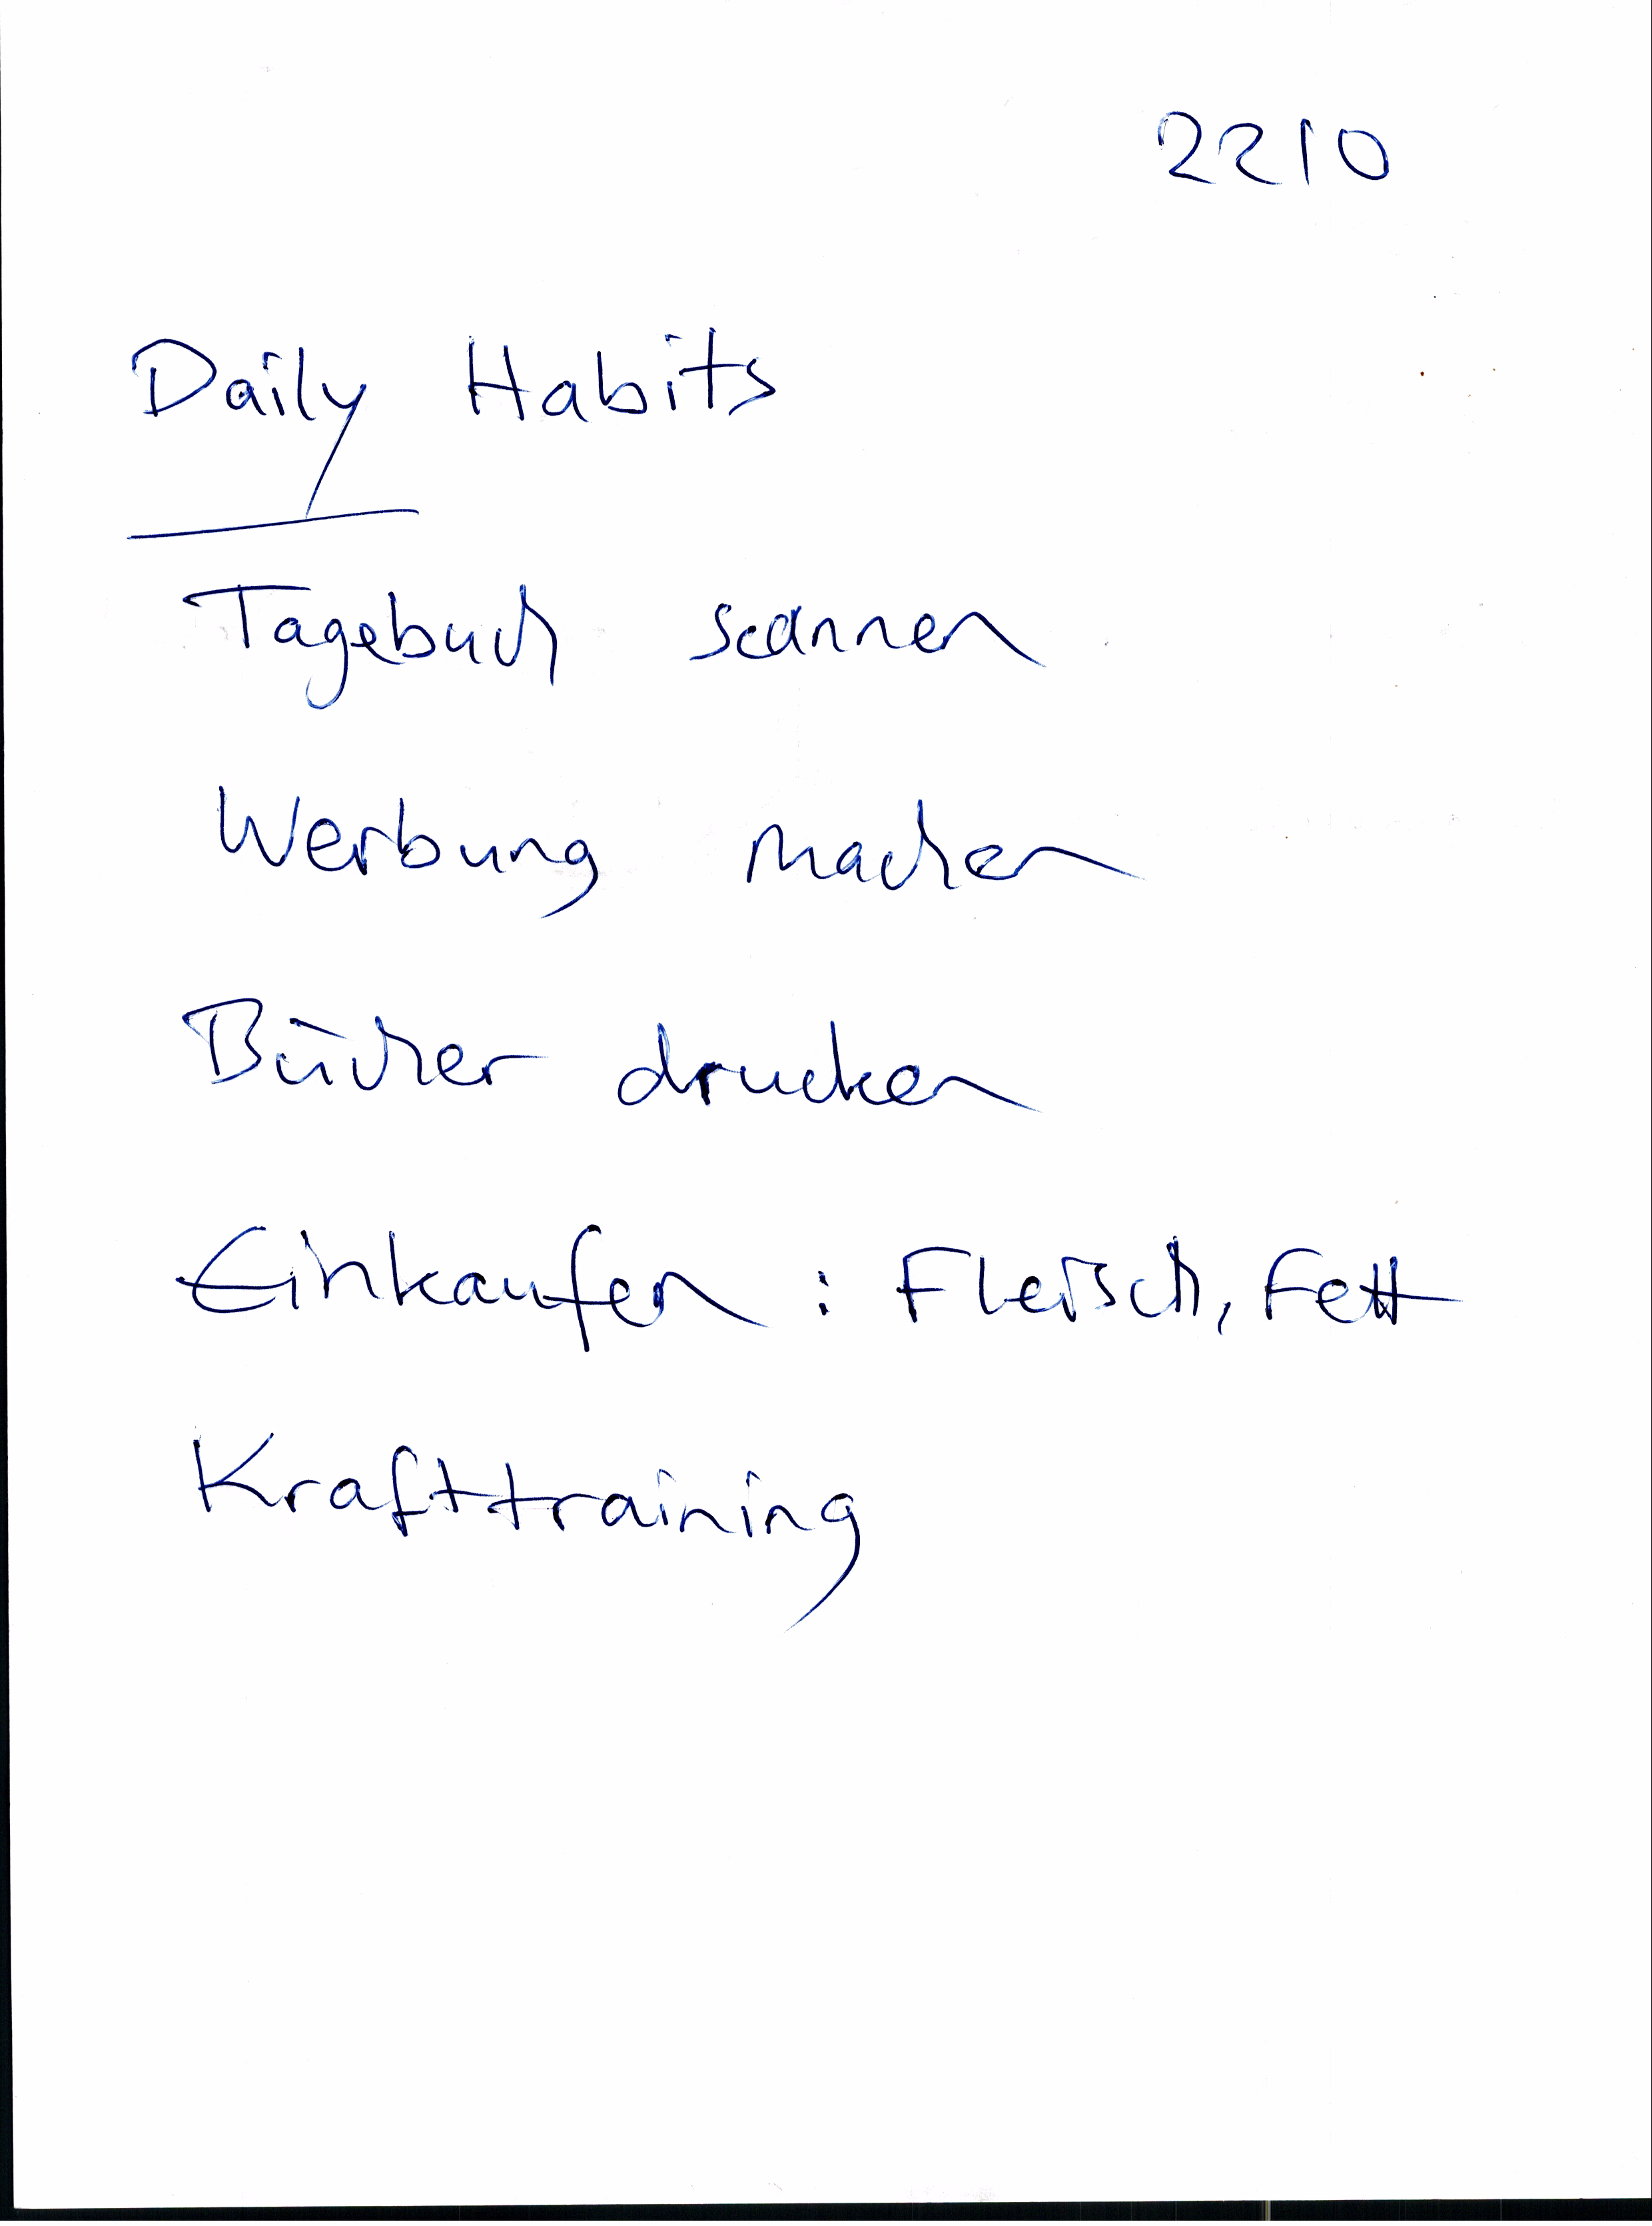 2210
Daily Habits
Tagebuch scannen
Werbung machen
Bücher drucken
Einkaufen : Fleisch, Fett
Krafttraining